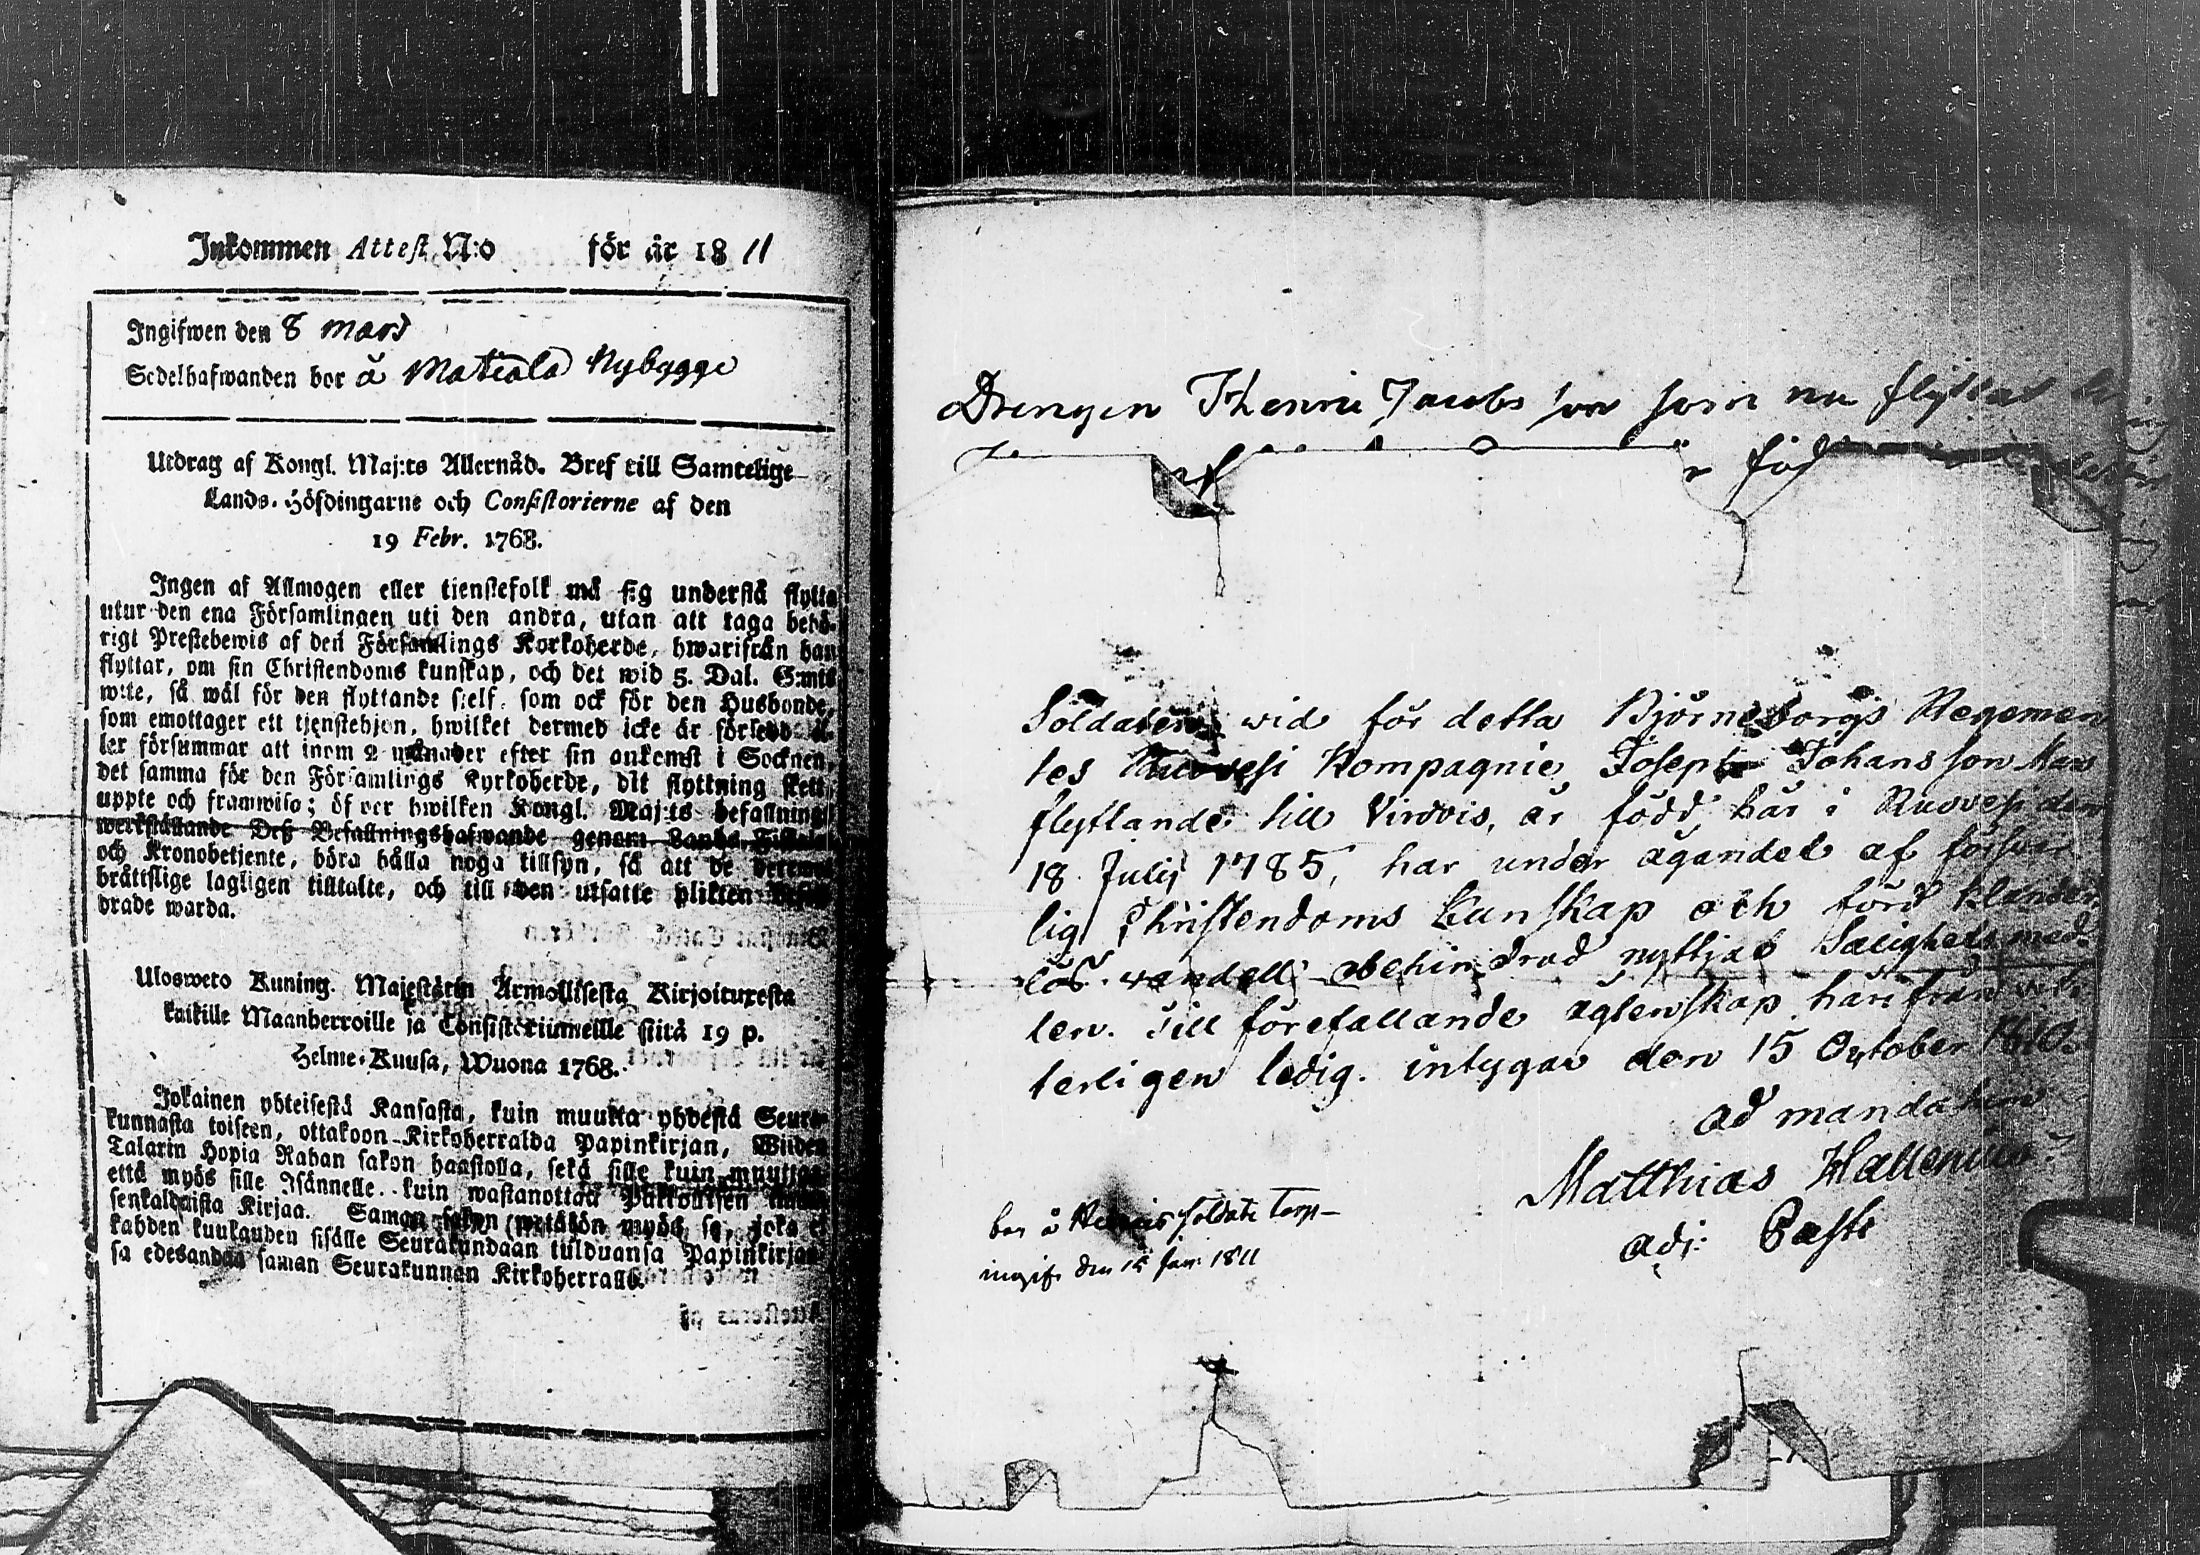 Inkommen Attest N:o för år 1811
Ingifwen den 8 mars
Sedelhafwanden bor å Matiala Nybygge
Utdrag af Kongl. Maj:ts Allernåd. Bref till Samtelige
Lands-Höfdingarne och Consistorierne af den
19 Febr. 1768.
Ingen af Allmogen eller tienstefolk må sig understå flytta
utur den ena Församlingen uti den andra, utan att taga behö-
rigt Prestebewis af den Församlings Kyrkoherde, hwarifrån han
flyttar, om sin Christendoms kunskap, och det wid 5. Dal. S:mts
wite, så wäl för den flyttande sielf, som ock för den Husbonde,
som emottager ett tjenstehjon, hwilket dermed icke är försedd el-
ler försummar att inom 2 månader efter sin ankomst i Socknen,
det samma för den Församlings Kyrkoherde, dit flyttning skett,
uppte och framwisa; öfwer hwilken Kongl. Maj:ts befallning
werkställande Deß Befallningshafwande genom Lands-Fiskaler
och Kronobetjente, böra hålla noga tillsyn, så att de
brättslige lagligen tilltalte, och till den utsatte plikten
drade warda.
Ulosweto Kuning. Majestätin Armollisesta Kirjoituxesta
kaikille Maanherroille ja Consistoriumeille siitä 19 p.
Helme-Kuusa, Wuona 1768.
Jokainen yhteisestä Kansasta, kuin muutta yhdestä Seura-
kunnasta toiseen, ottakoon Kirkoherralda Papinkirjan, Wiiden
Talarin Hopia Rahan sakon haastolla, sekä sille kuin muuttaa
että myös sille Isännelle, kuin wastanottaa Palkollisen
senkaldaista Kirjaa. Saman sakon wetäkön myös se, joka ei
kahden kuukauden sisälle Seurakundaan tulduansa Papinkirjaa
sa edesandaa saman Seurakunnan Kirkoherralle.
Drengen Henric Jacobs son som nu flyttar
föd
Soldaten wid för detta Björneborgs Regemen
tes Ruovesi Kompagnie Joseph Johansson
flyttande till Virdois, är född här i Ruovesi den
18 Julij 1785, har under ägandet af försvar
lig Christendoms Kunskap och förd klander
lös vandell obehindrad nyttjat Salighets med-
len. Till förefallande äglenskap härifrån vet
terligen ledig. intygar den 15 October 1810.
ad mandatum
Matthias Hallenius
adj: Past:
bor å soldate torp
ingif. den 15 Jan: 1811